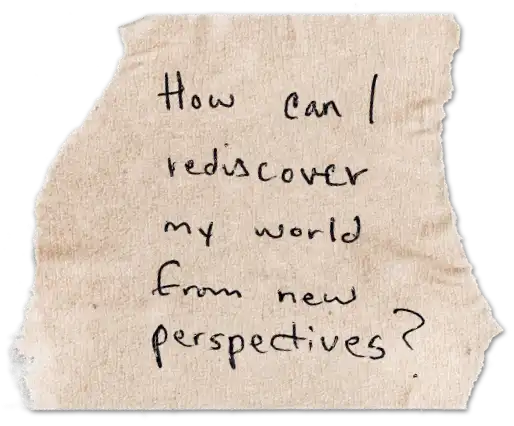 How can I
rediscover
my world
from new
perspectives?